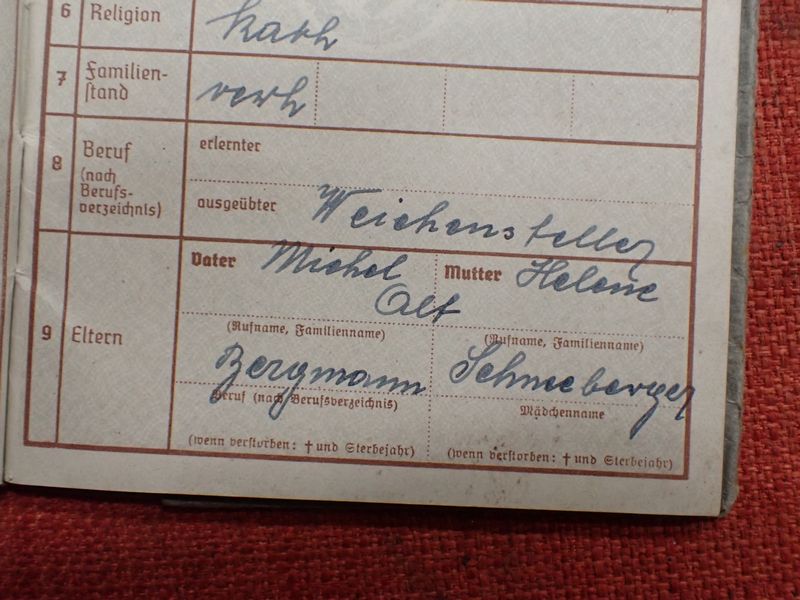 6 Religion kath
7 Familien-
stand verh
8 Beruf
(nach
Berufs-
verzeichnis)
erlernter
ausgeübter Weichensteller
9 Eltern
Vater Michel
Mutter Helene
Alt
(Rufname, Familienname)
(Rufname, Familienname)
Bergmann
Schneeberger
Beruf (nach Berufsverzeichnis)
Mädchenname
(wenn verstorben: † und Sterbejahr)
(wenn verstorben: † und Sterbejahr)